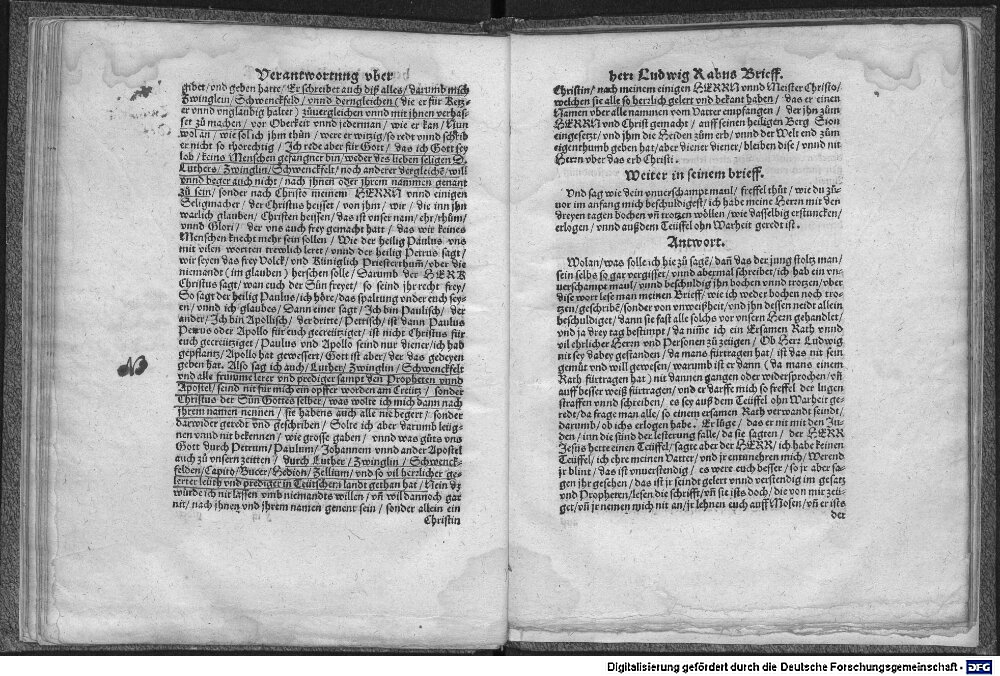 Verantwortung vber
gibet/vnd geben hatte/Er schreibet auch diß alles/darumb mich
Zwinglein/Schwenckfeld/vnnd derngleichen (die er für Ketz-
er vnnd vnglaubig haltet) zůuergleichen vnnd mit jhnen verhas-
set zů machen/vor Oberkeit vnnd jederman/wie er kan/Nun
wolan/wie sol ich jhm thůn/were er witzig so redt vnnd schrib
er nicht so thorechtig/Ich rede aber für Gott/das ich Gott sey
lob/keins Menschen gefangner bin/weder des lieben seligen D.
Luthers/Zwinglin/Schwenckfelt/noch anderer dergleichē/will
vnnd beger auch nicht/nach jhnen oder jhrem nammen genant
zů sein/sonder nach Christo meinem HERRN vnnd einigen
Seligmacher/der Christus heisset/von jhm/wir/die inn jhn
warlich glauben/Christen heissen/das ist vnser nam/ehr/rhům/
vnnd Glori/der vns auch frey gemacht hatt/das wir keines
Menschen knecht mehr sein sollen/Wie der heilig Paulus vns
mit vilen worten trewlich leret/vnnd der heilig Petrus sagt/
wir seyen das frey Volck/vnd Küniglich Priesterthum̄/vber die
niemandt (im glauben) herschen solle/Darumb der HERR
Christus sagt/wan euch der Sün freyet/so seind jhr recht frey/
So sagt der heilig Paulus/ich höre/das spaltung vnder euch sey-
en/vnnd ich glaubes/Dann einer sagt/Ich bin Paulisch/der
ander/Ich bin Apollisch/der dritte/Petrisch/ist dann Paulus
Petrus oder Apollo für euch gecreütziget/ist nicht Christus für
euch gecreütziget/Paulus vnd Apollo seind nur diener/ich hab
gepflantzt/Apollo hat gewessert/Gott ist aber/der das gedeyen
geben hat. Also sag ich auch/Luther/Zwinglin/Schwenckfelt
vnd alle frumme lerer vnd prediger sampt den Propheten vnnd
Apostel/seind nit für mich ein opffer worden am Creütz/sonder
Christus der Sün Gottes selber/was wolte ich mich dann nach
jhrem namen nennen/sie habens auch alle nie begert/sonder
darwider geredt vnd geschriben/Solte ich aber darumb leüg-
nen vnnd nit bekennen/wie grosse gaben/vnnd was gůts vns
Gott durch Petrum/Paulum/Johannem vnnd ander Apostel
auch zů vnsern zeitten/durch Luther/Zwinglin/Schwenck-
felden/Capito/Bucer/Hedion/Zellium/vnd so vil herzlicher ge-
lerter leüth vnd prediger in Teütschem landt gethan hat/Nein dz
würde ich nit lassen vmb niemandts willen/vn̄ will dannoch gar
nit/nach jhnen vnd jhrem namen genent sein/sonder allein ein
Christin
herr Ludwig Rabus Brieff.
Christin/nach meinem einigen HERRN vnnd Meister Christo/
welchen sie alle so herzlich gelert vnd bekant haben/das er einen
Namen vber alle nammen vom Vatter empfangen/der jhn zům
HERRN vnd Christ gemacht/auff seinen heiligen Berg Sion
eingesetzt/vnd jhm die Heiden zům erb/vnnd der Welt end zům
eigenthumb geben hat/aber diener diener/bleiben dise/vnnd nit
Herrn vber das erb Christi.
Weiter in seinem brieff.
Vnd sag wie dein vnuerschampt maul/freffel thůt/wie du zů-
uor im anfang mich beschuldigest/ich habe meine Herrn mit den
dreyen tagen bochen vn̄ trotzen wöllen/wie dasselbig erstuncken/
erlogen/vnnd außdem Teüffel ohn Warheit geredt ist.
Antwort.
Wolan/was solle ich hie zů sagē/dan̄ das der jung stoltz man/
sein selbs so gar vergisset/vnnd abermal schreibet/ich hab ein vn-
uerschampt maul/vnnd beschuldig jhn bochen vnnd trotzen/vber
dise wort lese man meinen Brieff/wie ich weder bochen noch tro-
tzen/geschribē/sonder von vnweißheit/vnd jhn dessen neidt allein
beschuldiget/dann sie fast alle solchs vor vnsern Hern gehandlet/
vnd ja drey tag bestimpt/da nim̄e ich ein Ersamen Rath vnnd
vil ehrlicher Herrn vnd Personen zů zeügen/Ob Herr Ludwig
nit sey dabey gestanden/da mans fürtragen hat/ist das nit sein
gemüt vnd will gewesen/warumb ist er dann (da mans einem
Rath fürtragen hat) nit dannen gangen oder widersprochen/vn̄
auff besser weiß fürtragen/vnd er darffe mich so freffel der lugen
straffen vnnd schreiben/es sey auß dem Teüffel ohn Warheit ge-
redt/da frage man alle/so einem ersamen Rath verwandt seindt/
darumb/ob ichs erlogen habe. Er lüge/das er nit mit den Ju-
den/inn die sünd der lesterung falle/da sie sagten/der HERR
Jesus hette einen Teüffel/sagte aber der HERR/ich habe keinen
Teüffel/ich ehre meinen Vatter/vnd jr entunehren mich/Werend
jr blint/das ist vnuerstendig/es were euch besser/so jr aber sa-
gen jhr gesehen/das ist jr seindt gelert vnnd verstendig im gesatz
vnd Propheten/lesen die schrifft/vn̄ sie ists doch/die von mir zeü-
get/vn̄ jr nemen mich nit an/jr lehnen euch auff Mosen/vn̄ er ists
der
Digitalisierung gefördert durch die Deutsche Forschungsgemeinschaft - DFG